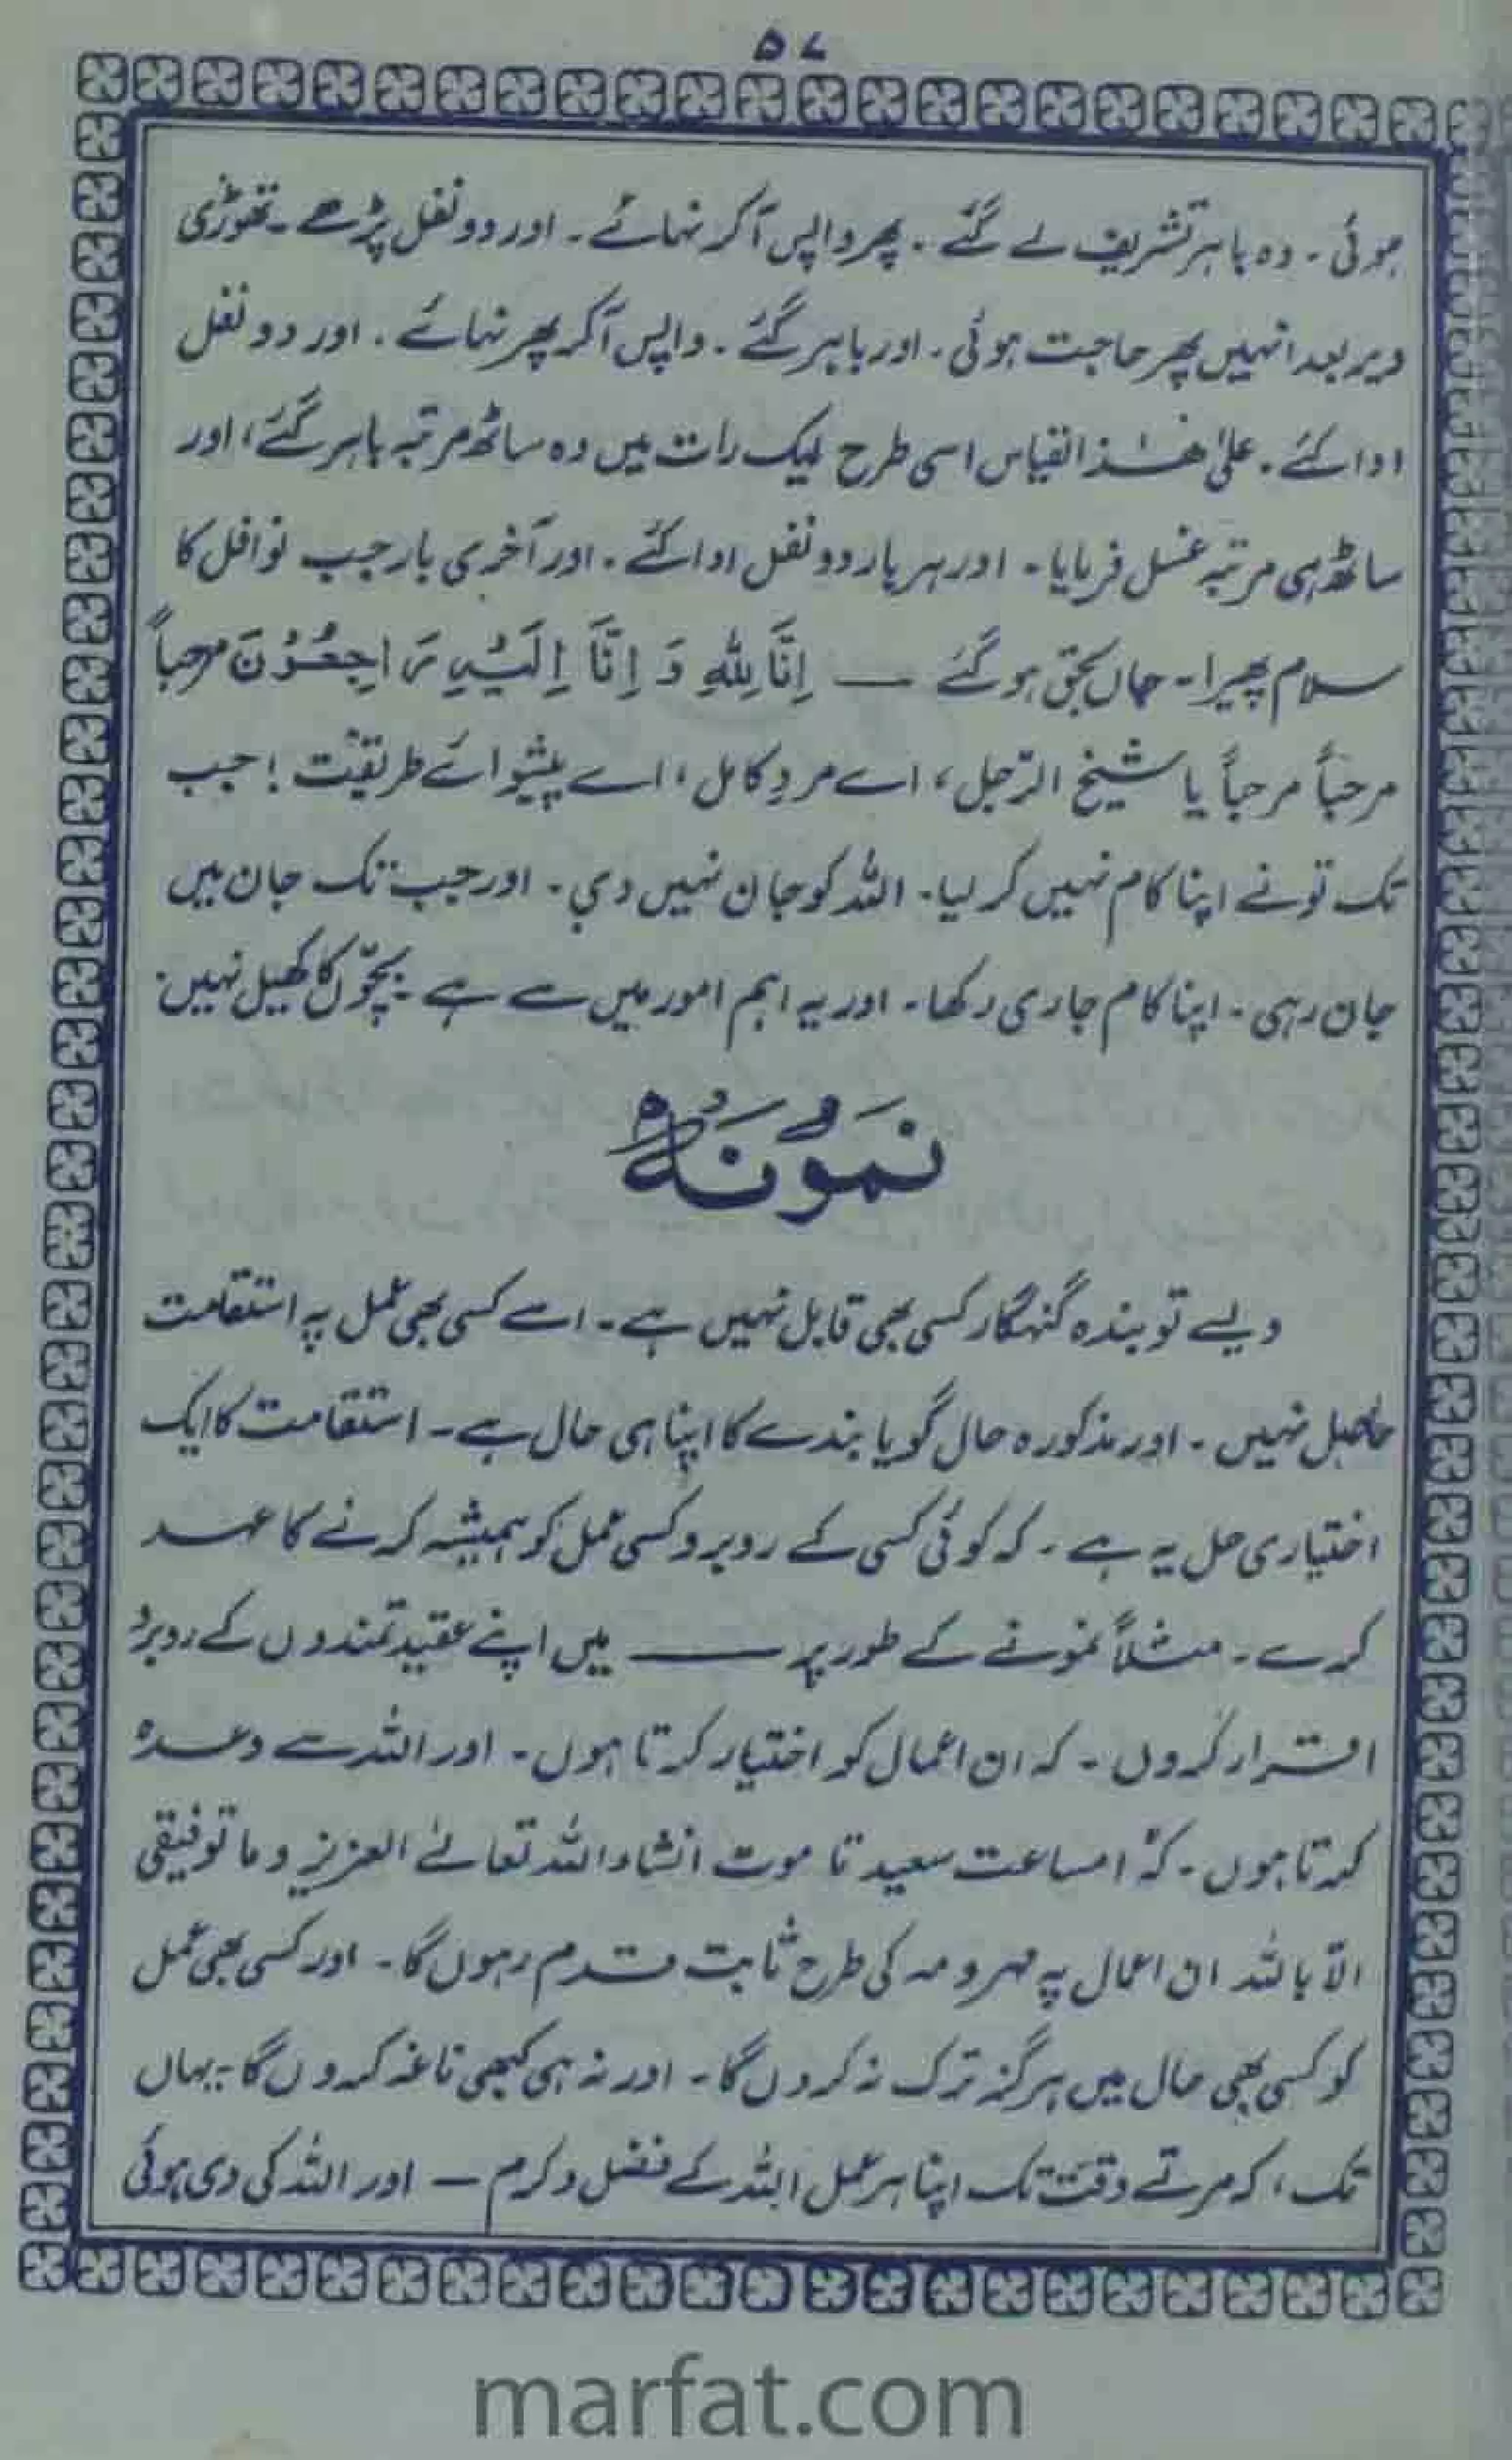 ۵۷
ہوئی۔ وہ باہر تشریف لے گئے۔ پھر واپس آکر نہائے۔ اور دو نفل پڑھے۔ تھوڑی
دیر بعد انہیں پھر حاجت ہوئی۔ اور باہر گئے۔ واپس آکر پھر نہائے۔ اور دو نفل
ادا کئے۔ علیٰ ھٰذا القیاس اسی طرح ایک رات میں وہ ساٹھ مرتبہ باہر گئے، اور
ساٹھ ہی مرتبہ غسل فرمایا۔ اور ہر بار دو نفل ادا کئے۔ اور آخری بار جب نوافل کا
سلام پھیرا۔ جاں بحق ہو گئے ــــ اِنَّا لِلّٰہِ وَ اِنَّا اِلَیْہِ رَاجِعُوْنَ مرحباً
مرحباً مرحباً یا شیخ الرّجل، اے مردِ کامل، اے پیشوائے طریقت! جب
تک تو نے اپنا کام نہیں کر لیا۔ اللہ کو جان نہیں دی۔ اور جب تک جان میں
جان رہی۔ اپنا کام جاری رکھا۔ اور یہ اہم امور میں سے ہے۔ بچّوں کا کھیل نہیں۔
نمونہ
ویسے تو بندہ گنہگار کسی بھی قابل نہیں ہے۔ اسے کسی بھی عمل پہ استقامت
حاصل نہیں۔ اور مذکورہ حال گویا بندے کا اپنا ہی حال ہے۔ استقامت کا ایک
اختیاری حل یہ ہے۔ کہ کوئی کسی کے روبرو کسی عمل کو ہمیشہ کرنے کا عہد
کرے۔ مثلاً نمونے کے طور پر ــــــ میں اپنے عقیدتمندوں کے روبرو
اقرار کروں۔ کہ ان اعمال کو اختیار کرتا ہوں۔ اور اللہ سے وعدہ
کرتا ہوں۔ کہ امساعت سعید تا موت انشاء اللہ تعالےٰ العزیز وما توفیقی
الّا باللہ ان اعمال پہ مہر و مہ کی طرح ثابت قدم رہوں گا۔ اور کسی بھی عمل
کو کسی بھی حال میں ہرگز ترک نہ کروں گا۔ اور نہ ہی کبھی ناغہ کروں گا۔ یہاں
تک، کہ مرتے وقت تک اپنا ہر عمل اللہ کے فضل و کرم ــ اور اللہ کی دی ہوئی
marfat.com